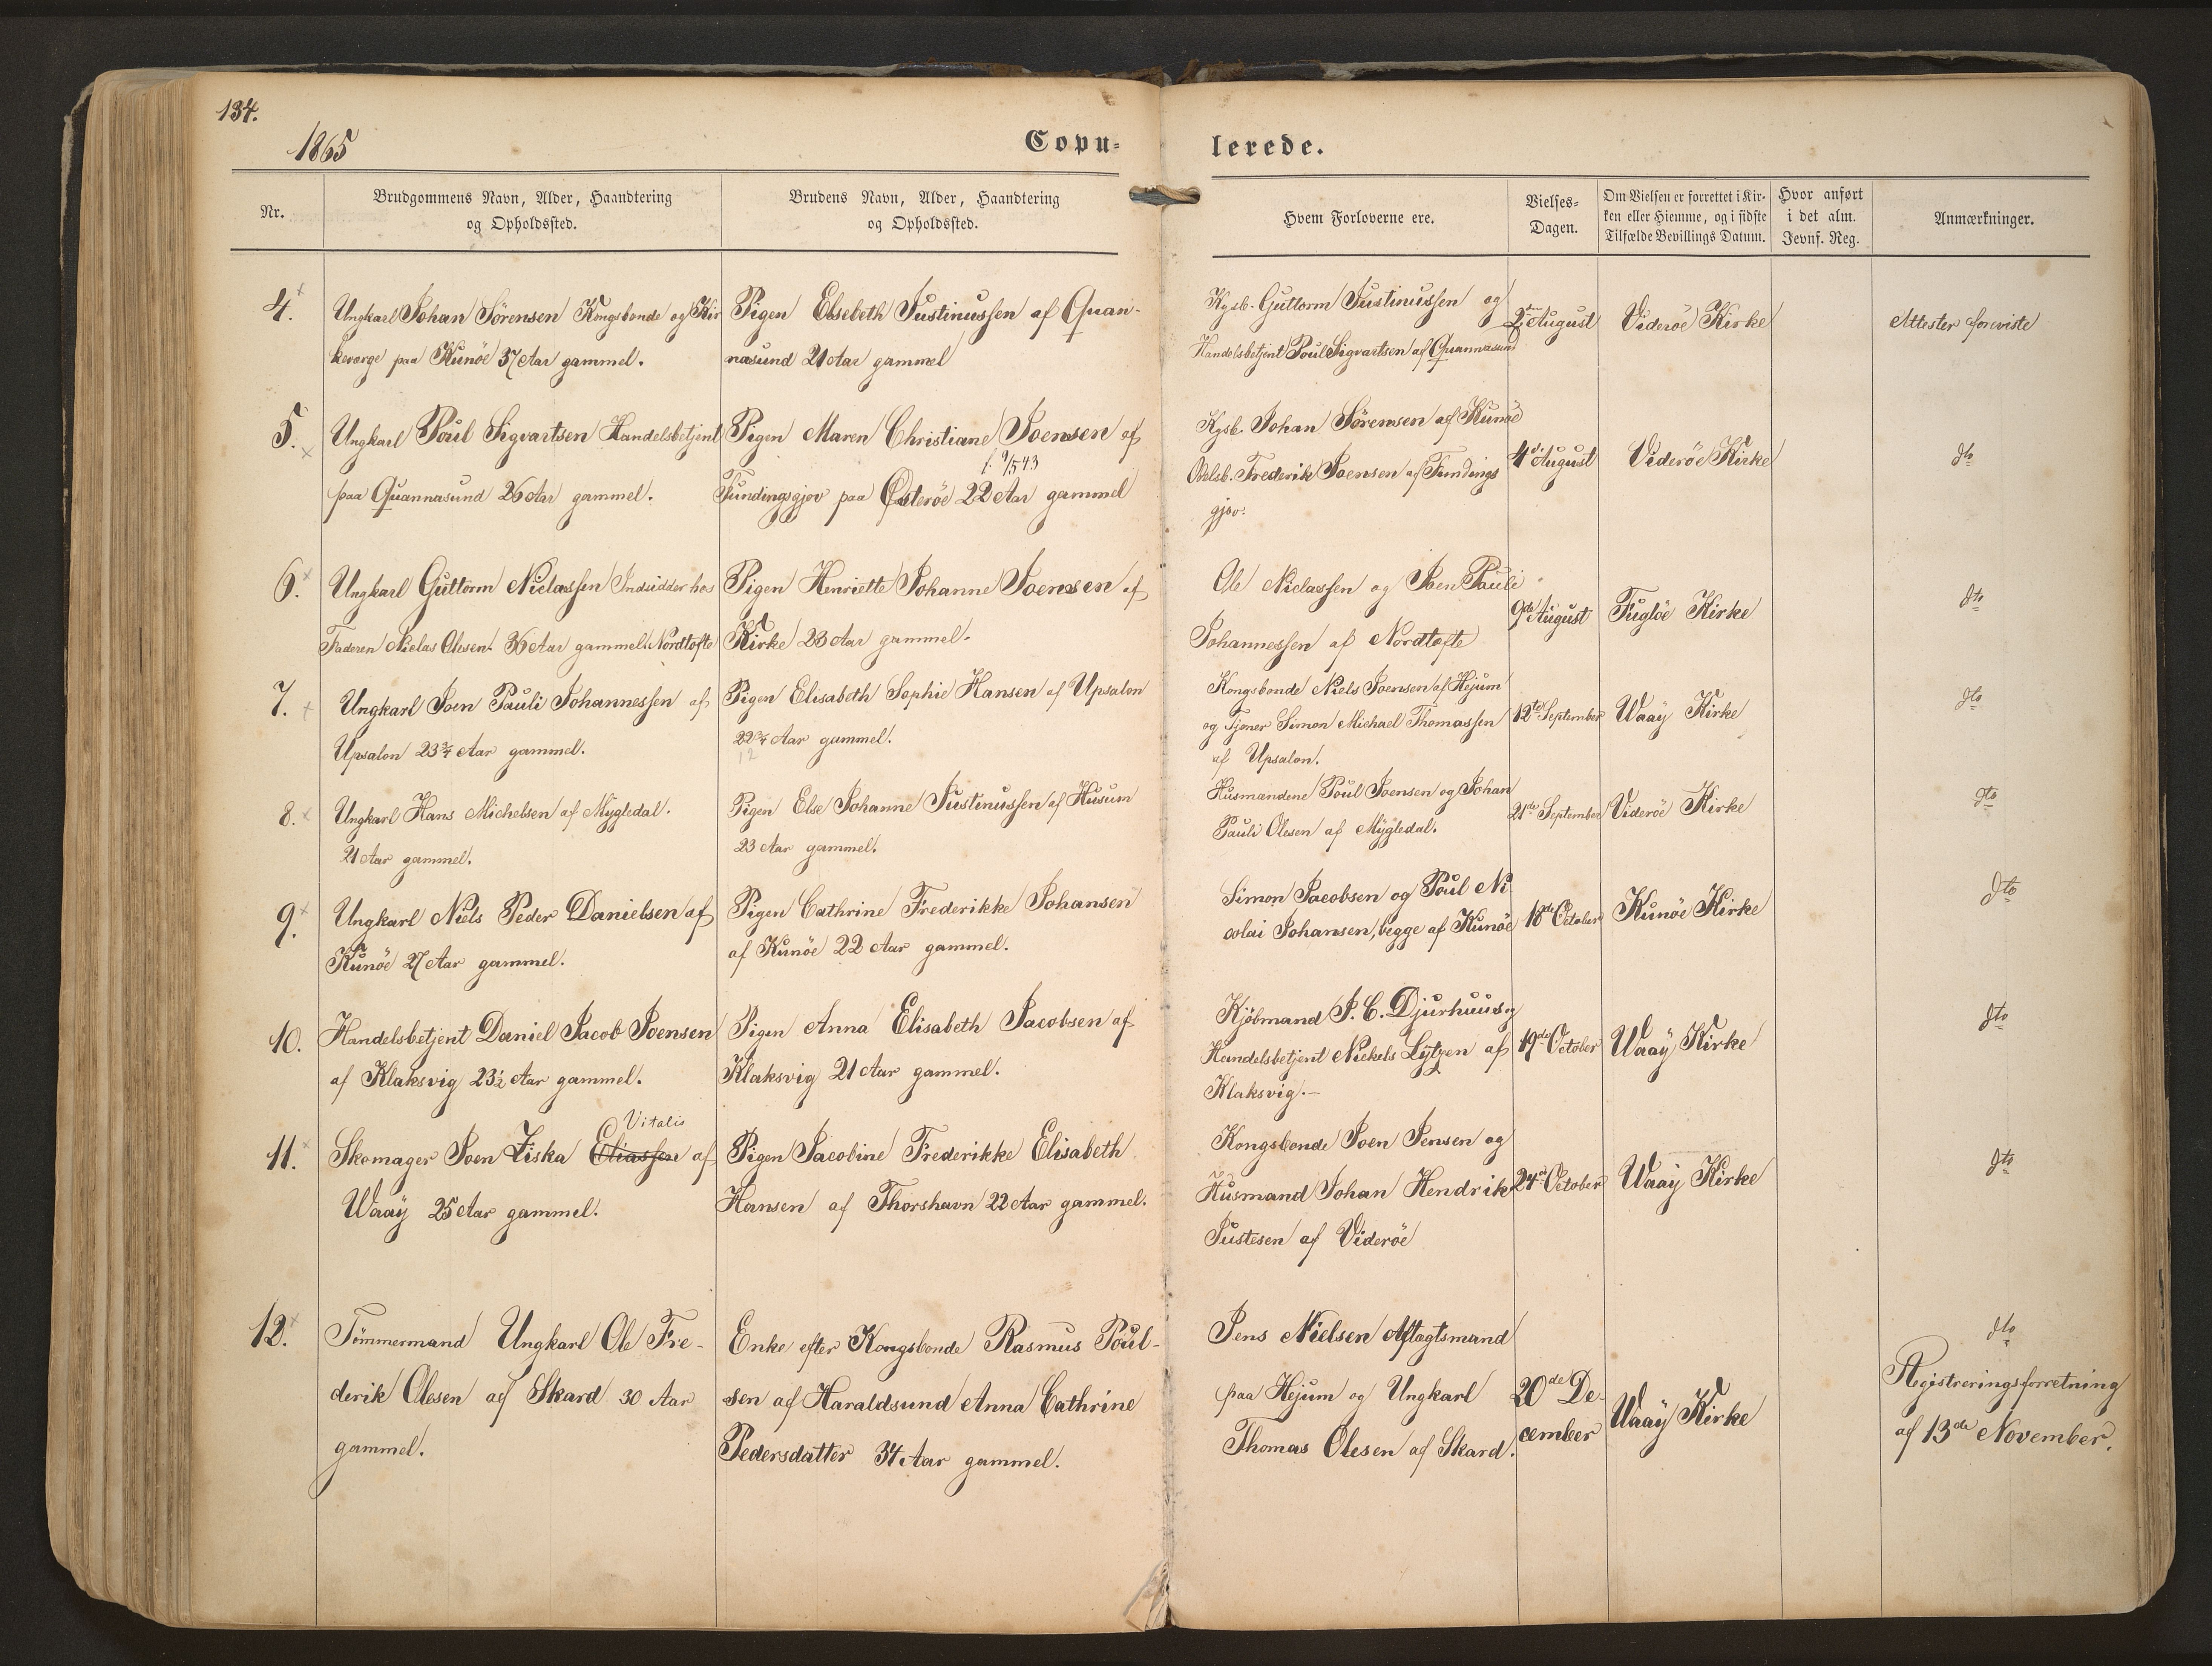 134.
1865
Copu=
lerede.
Nr.
Brudgommens Navn, Alder, Haandtering
og Opholdssted.
Brudens Navn, Alder, Haandtering
og Opholdssted.
Hvem Forloverne ere.
Vielses=
Dagen.
Om Vielsen er forrettet i Kir=
ken eller Hiemme, og i sidste
Tilfælde Bevillings Datum.
Hvor anført
i det alm.
Jevnf. Reg.
Anmærkninger.
4.
Ungkarl Johan Sörensen Kongsbonde og Kir
keverge paa Kunöe 37 Aar gammel.
Pigen Elsebeth Justinussen af Quan-
nasund 21 Aar gammel
Kgsb. Guttorm Justinussen og
Handelsbetjent Poul Sigvartsen af Quannasund
2den August
Viderøe Kirke
Attester foreviste
5.
Ungkarl Poul Sigvartsen Handelsbetjent
paa Quannasund 26 Aar gammel.
Pigen Maren Christiane Joensen af
f. 9/5 43
Fundingsgjov paa Østeröe 22 Aar gammel
Kgsb. Johan Sörensen af Kunöe
Odelsb. Frederik Joensen af Fundings
gjov.
4de August
Viderøe Kirke
dto
6.
Ungkarl Guttorm Niclassen Indsidder hos
Faderen Niclas Olesen. 36 Aar gammel. Nordtofte
Pigen Henriette Johanne Joensen af
Kirke 23 Aar gammel.
Ole Niclassen og Joen Pauli
Johannessen af Nordtofte
9de August
Fuglöe Kirke
dto
7.
Ungkarl Joen Pauli Johannessen af
Upsalon 23 3/4 Aar gammel.
Pigen Elisabeth Sophie Hansen af Upsalon
22 3/4 Aar gammel.
12
Kongsbonde Niels Joensen af Hejum
og Tjener Simon Michael Thomassen
af Upsalon.
12te September
Waaÿ Kirke
dto
8.
Ungkarl Hans Michelsen af Mygledal.
21 Aar gammel.
Pigen Else Johanne Justinussen af Husum
23 Aar gammel.
Husmændene Poul Joensen og Johan
Pauli Olesen af Mygledal.
21de September
Viderøe Kirke
dto
9.
Ungkarl Niels Peder Danielsen af
Kunöe 27 Aar gammel.
Pigen Cathrine Frederikke Johansen
af Kunöe 22 Aar gammel.
Simon Jacobsen og Poul Ni
colai Johansen, begge af Kunöe
18de October
Kunöe Kirke
dto
10.
Handelsbetjent Daniel Jacob Joensen
af Klaksvig 23 1/2 Aar gammel.
Pigen Anna Elisabeth Jacobsen af
Klaksvig 21 Aar gammel.
Kjöbmand J. C. Djurhuus og
Handelsbetjent Nickels Lÿtzen af
Klaksvig.-
19de October
Waaÿ Kirke
dto
11.
Vitalis
Skomager Joen Ziska Eliassen af
Waaÿ 25 Aar gammel.
Pigen Jacobine Frederikke Elisabeth
Hansen af Thorshavn 22 Aar gammel.
Kongsbonde Joen Jensen og
Husmand Johan Hendrik
Justesen af Viderøe
24de October
Waaÿ Kirke
dto
12.
Tömmermand Ungkarl Ole Fre-
derik Olesen af Skard 30 Aar
gammel.
Enke efter Kongsbonde Rasmus Poul-
sen af Haraldsund Anna Cathrine
Pedersdatter 34 Aar gammel.
Jens Nielsen Aftagtsmand
paa Hejum og Ungkarl
Thomas Olesen af Skard.
20de De-
cember
Waaÿ Kirke
dto
Registreringsforretning
af 13de November.